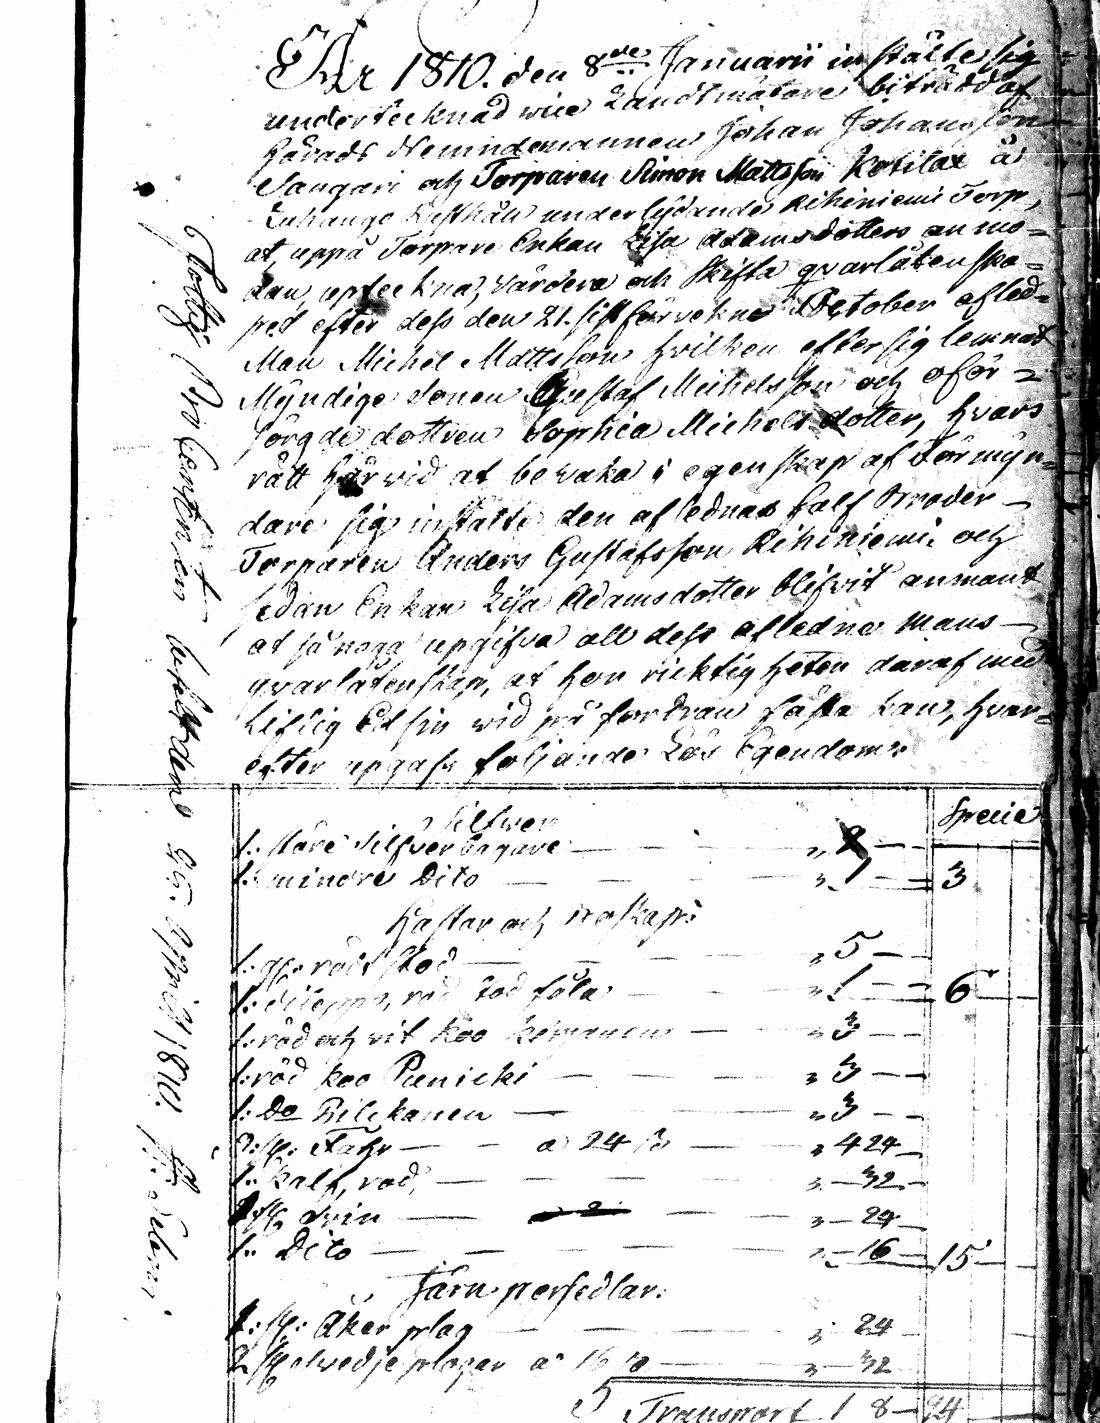 År 1810. den 8de Januarii instälte sig
undertecknad vice Landtmätare biträdd af
Härads Nemndemannen Johan Johansson
Sangari och Torparen Simon Mattsson Kotilax å
Lunkango Rusthåll underlydande Rihiniemi Torp,
at, uppå Torpare Enkan Lisa Adamsdotters anmo=
dan, upteckna, värdera och skifta qvarlåtenska=
pet efter dess den 21. sistförvekne October afled=
Man Michel Mattsson hvilken efter sig lemnat
Myndige Sonen Gustaf Michelsson och oför=
sörgde dottren Sophia Michelsdotter, hvars
rätt härvid at bevaka i egenskap af Förmyn=
dare sig instälte den aflednas half Broder
Torparen Anders Gustafsson Rihiniemi. och
sedan Enkan Lisa Adamsdotter blifvit anmant
at så noga upgifva all dess aflednes Mans
qvarlåtenskap, at hon ricktigheten daraf med
Liflig Ed sin vid påfordran fästa kan, hvar=
efter upgafs foljande Lös Egendom:
Specie
Silfwer
1: störe Silfver Bägare — „ 2 —
1: mindre Dito — „ 1 — 3
Hästar och Boskap:
1: st: rödt Stod — „ 5 —
1: röd Tod föla — „ 1 — 6
1: röd och vit Koo — „ 3 —
1: röd Koo Punicki — „ 3 —
1: Do — „ 3 —
st: Fåhr — a 24 — „ 4 24
1: Kalf, röd, — „ — 32
st: Svin — „ — 24
1: Dito — „ — 16 — 15
Järn persedlar:
1: st: Åker plog — „ 24
2 st svedje plogar a 16 — „ — 32
Transport 1 8 — 24
April 1810.